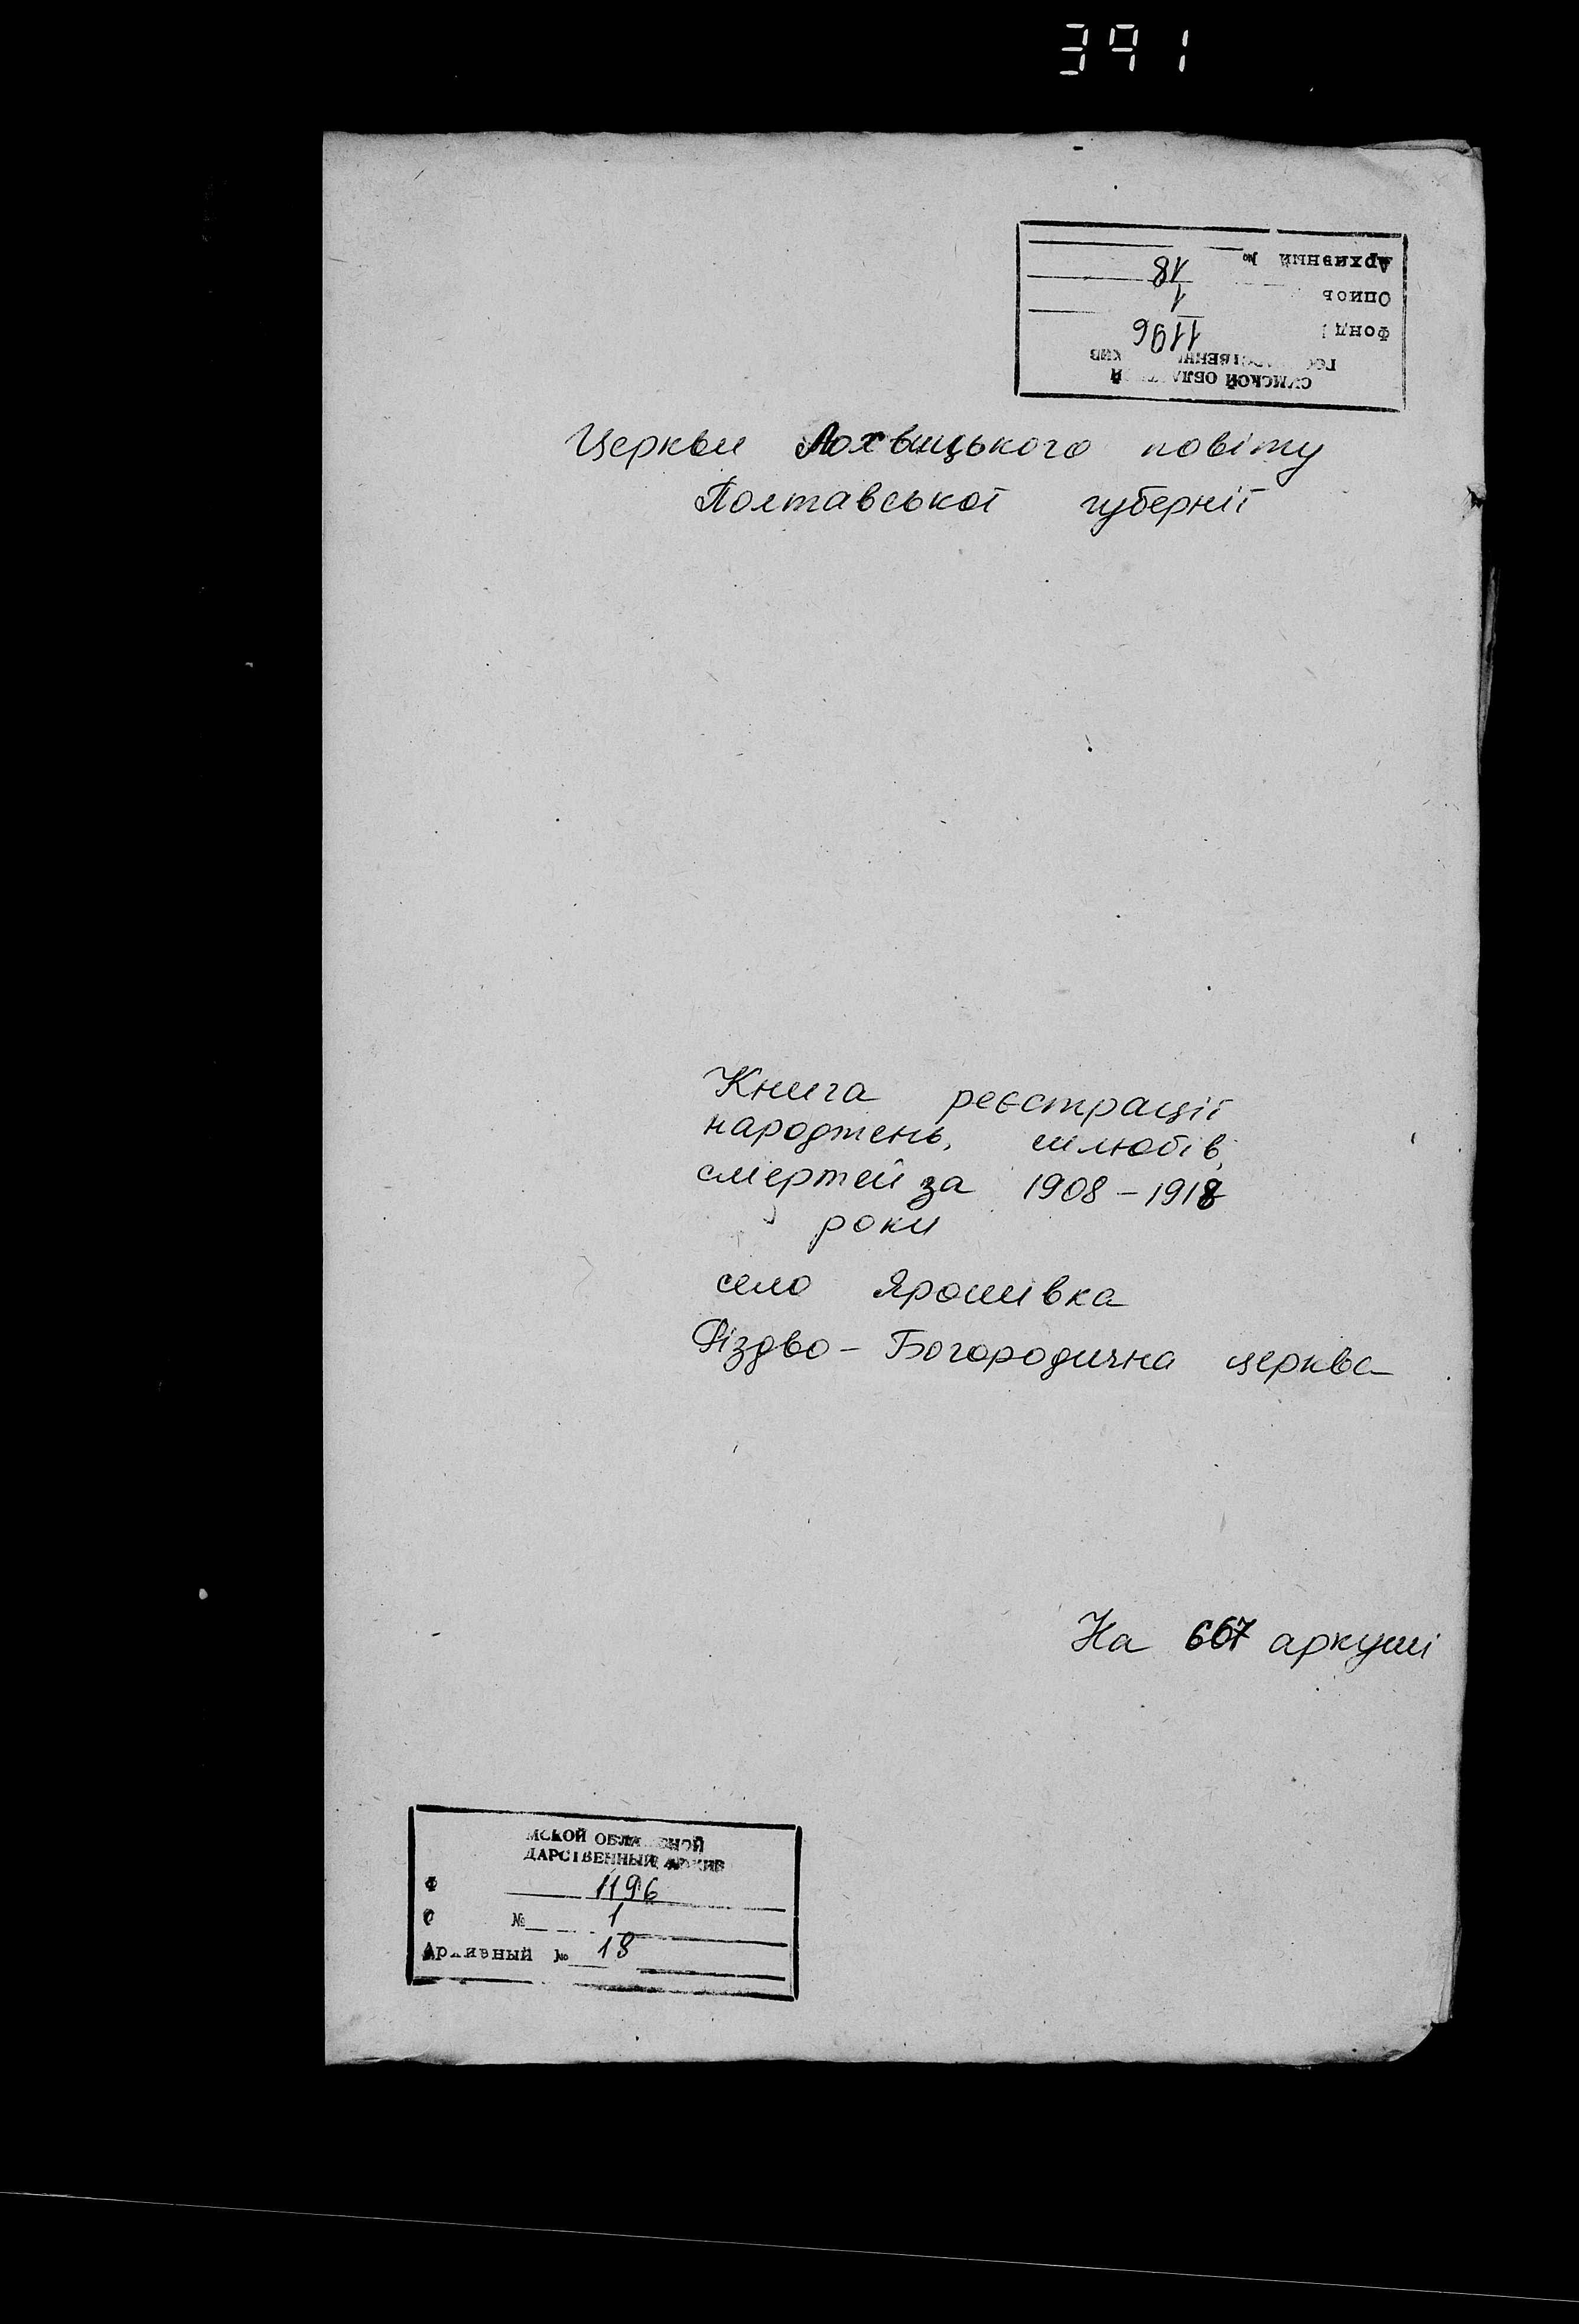 391
СУМСКОЙ
Фонд 1196
Опись 1
Архивный № 18
Церкви Лохвицького повіту
Полтавської губернії
Книга реєстрації
народжень, шлюбів,
смертей за 1908-1918
роки
село Ярошівка
Різдво-Богородична церква
На 667 аркуші
МСКОЙ
ДАРСТВЕННЫЙ АРХИВ
Ф 1196
О № 1
Архивный № 18